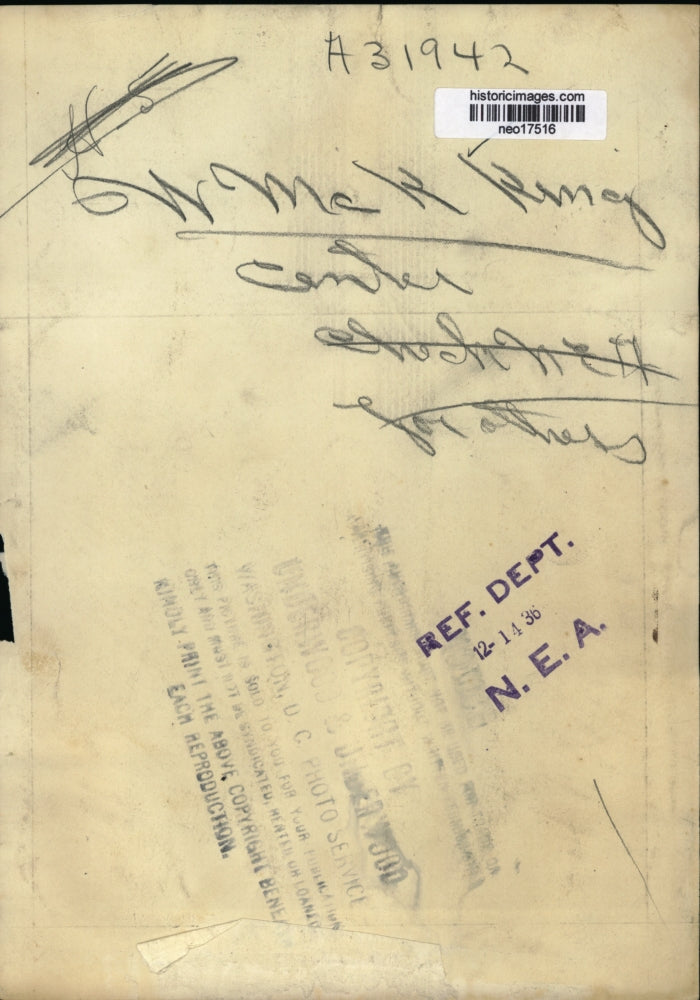 A31942
historicimages.com
neo17516
W McK King
center
check NEA
for others
REF. DEPT.
12-14 36
N. E. A.
COPYRIGHT BY
UNDERWOOD & UNDERWOOD
WASHINGTON, D. C. PHOTO SERVICE
THIS PICTURE IS SOLD TO YOU FOR YOUR PUBLICATION
ONLY AND MUST NOT BE SYNDICATED, RENTED OR LOANED
KINDLY PRINT THE ABOVE COPYRIGHT BENEATH
EACH REPRODUCTION.